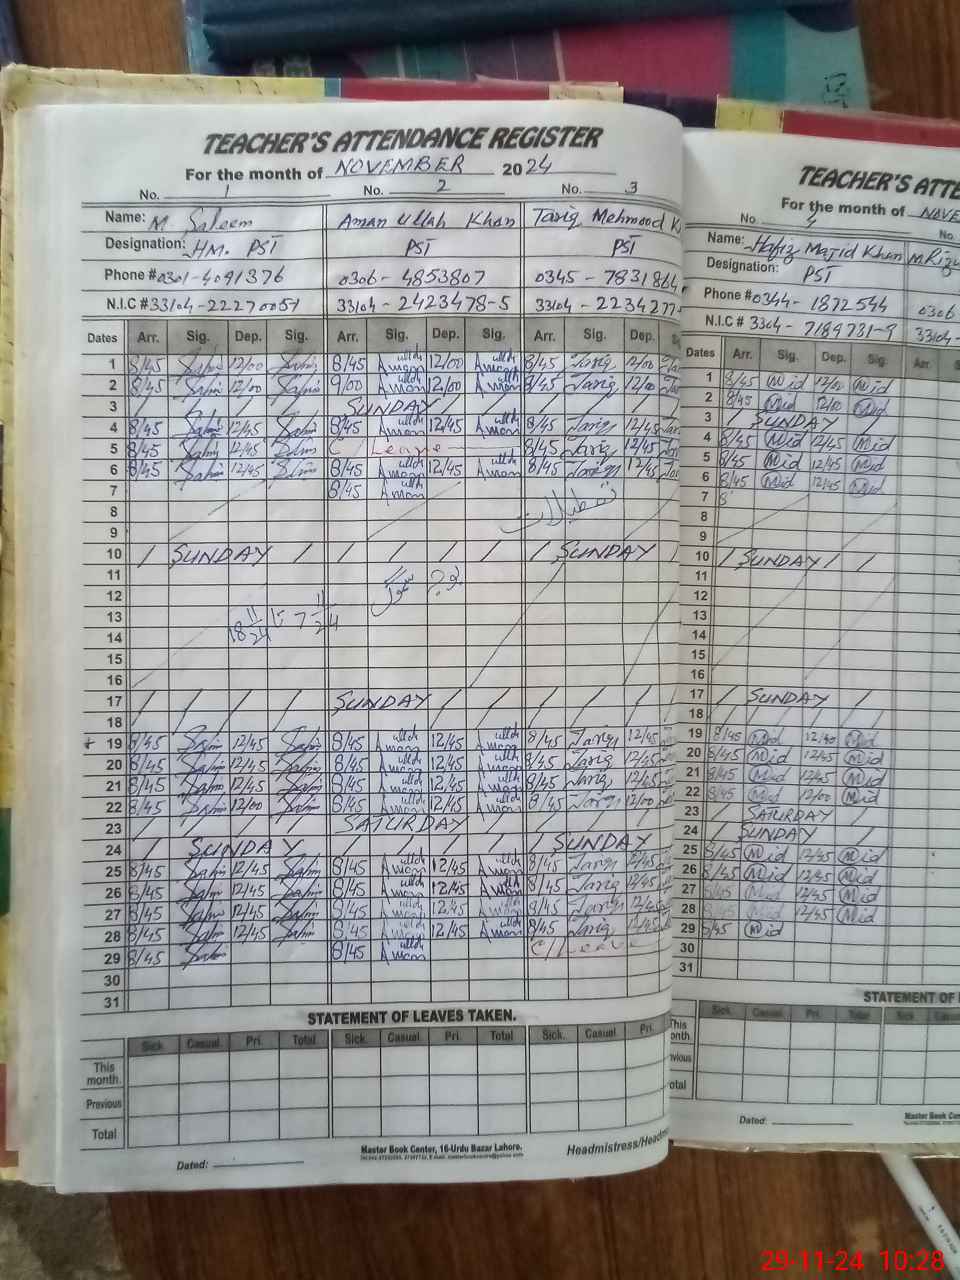 TEACHER'S ATTENDANCE REGISTER
For the month of NOVEMBER 2024
No. 1 No. 2 No. 3
Name: M. Saleem Aman Ullah Khan Tariq Mehmood K
Designation: HM. PST PST PST
Phone # 0301-4091376 0306-4853807 0345-7831864
N.I.C # 33104-22270051 33104-2423478-5 33104-2234277
Dates Arr. Sig. Dep. Sig. Arr. Sig. Dep. Sig. Arr. Sig. Dep.
1 8/45 12/00 8/45 Aman ullah 12/00 Aman ullah 8/45 Tariq 12/00
2 8/45 12/00 9/00 Aman ullah 12/00 Aman ullah 8/45 Tariq 12/00
3 SUNDAY
4 8/45 12/45 8/45 Aman ullah 12/45 Aman ullah 8/45 Tariq 12/45
5 8/45 12/45 C/Leave 8/45 Tariq 12/45
6 8/45 12/45 8/45 Aman ullah 12/45 Aman ullah 8/45 Tariq 12/45
7 8/45 Aman ullah
8 تعطیلات
9
10 SUNDAY SUNDAY
11
12 بوجہ سموگ
13 18 11/24 تا 7 11/24
14
15
16
17 SUNDAY
18
19 8/45 12/45 8/45 Aman ullah 12/45 Aman ullah 8/45 Tariq 12/45
20 8/45 12/45 8/45 Aman ullah 12/45 Aman ullah 8/45 Tariq 12/45
21 8/45 12/45 8/45 Aman ullah 12/45 Aman ullah 8/45 Tariq 12/45
22 8/45 12/00 8/45 Aman ullah 12/45 Aman ullah 8/45 Tariq 12/00
23 SATURDAY
24 SUNDAY SUNDAY
25 8/45 12/45 8/45 Aman ullah 12/45 Aman ullah 8/45 Tariq 12/45
26 8/45 12/45 8/45 Aman ullah 12/45 Aman ullah 8/45 Tariq 12/45
27 8/45 12/45 8/45 Aman ullah 12/45 Aman ullah 8/45 Tariq 12/45
28 8/45 12/45 8/45 Aman ullah 12/45 Aman ullah 8/45 Tariq 12/45
29 8/45 8/45 Aman ullah C/Leave
30
31
STATEMENT OF LEAVES TAKEN.
Sick. Casual Pri. Total Sick. Casual Pri. Total Sick. Casual Pri.
This month.
Previous
Total
Dated:
Master Book Center, 16-Urdu Bazar Lahore.
Headmistress/Headm
TEACHER'S ATTE
For the month of NOVE
No. 4 No.
Name: Hafiz Majid Khan M Rizw
Designation: PST
Phone # 0344-1872544 0306
N.I.C # 33104-7189731-9 33104-
Dates Arr. Sig. Dep. Sig. Arr.
1 8/45 Mid 12/00 Mid
2 8/45 Mid 12/00 Mid
3 SUNDAY
4 8/45 Mid 12/45 Mid
5 8/45 Mid 12/45 Mid
6 8/45 Mid 12/45 Mid
7 8
8
9
10 SUNDAY
11
12
13
14
15
16
17 SUNDAY
18
19 8/45 Mid 12/40 Mid
20 8/45 Mid 12/45 Mid
21 8/45 Mid 12/45 Mid
22 8/45 Mid 12/00 Mid
23 SATURDAY
24 SUNDAY
25 8/45 Mid 12/45 Mid
26 8/45 Mid 12/45 Mid
27 8/45 Mid 12/45 Mid
28 8/45 Mid 12/45 Mid
29 8/45 Mid
30
31
STATEMENT OF
Sick. Casual Pri. Total Sick
This
onth.
evious
otal
Dated:
Master Book Cente
29-11-24 10:28